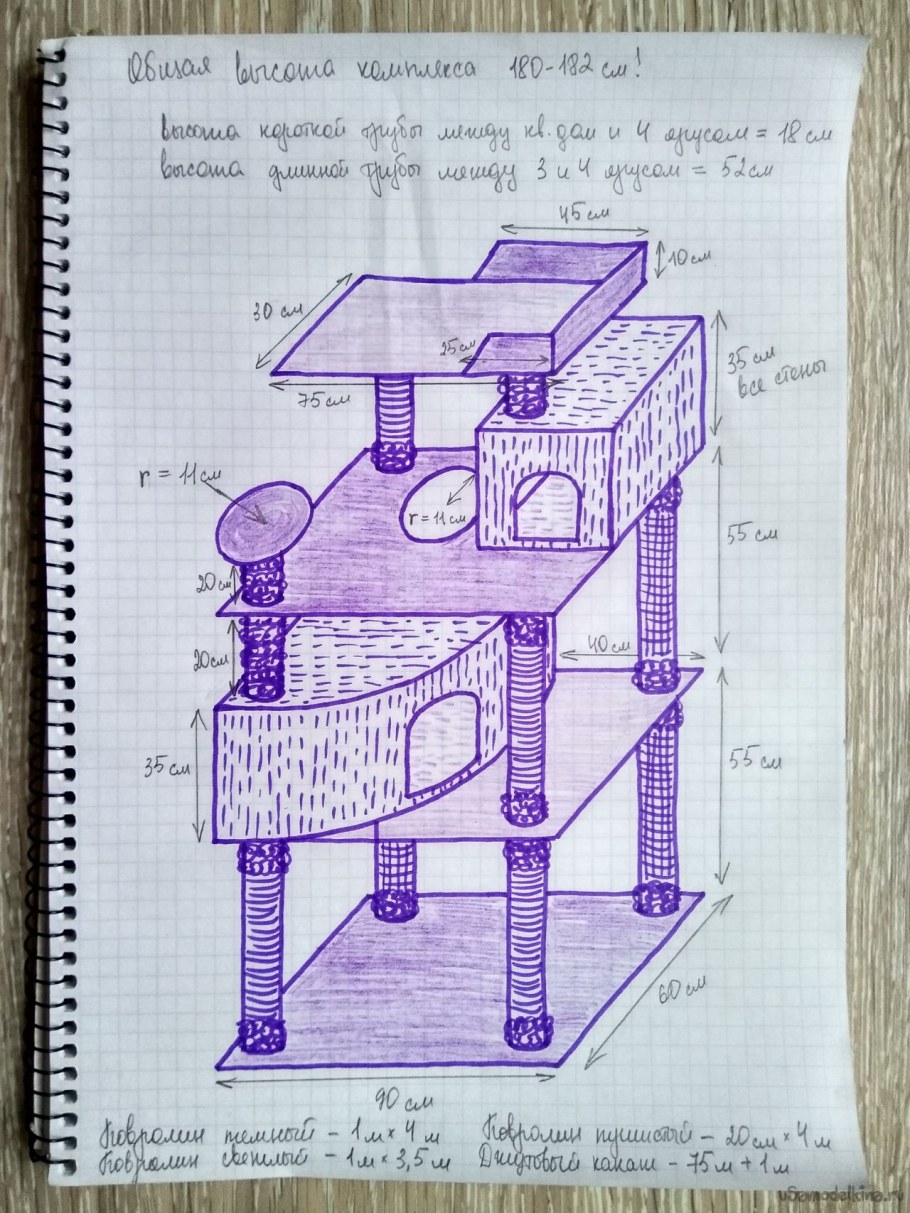 Общая высота комплекса 180-182 см!
высота короткой трубы между кв. дом и 4 ярусом = 18 см
высота длинной трубы между 3 и 4 ярусом = 52 см
45 см
10 см
30 см
25 см
35 см
все стены
75 см
r = 11 см
r = 11 см
55 см
20 см
40 см
20 см
35 см
55 см
60 см
90 см
Ковролин темный - 1 м × 4 м
Ковролин пушистый - 20 см × 4 м
Ковролин светлый - 1 м × 3,5 м
Джутовый канат - 75 м + 1 м
uSamodelkina.ru